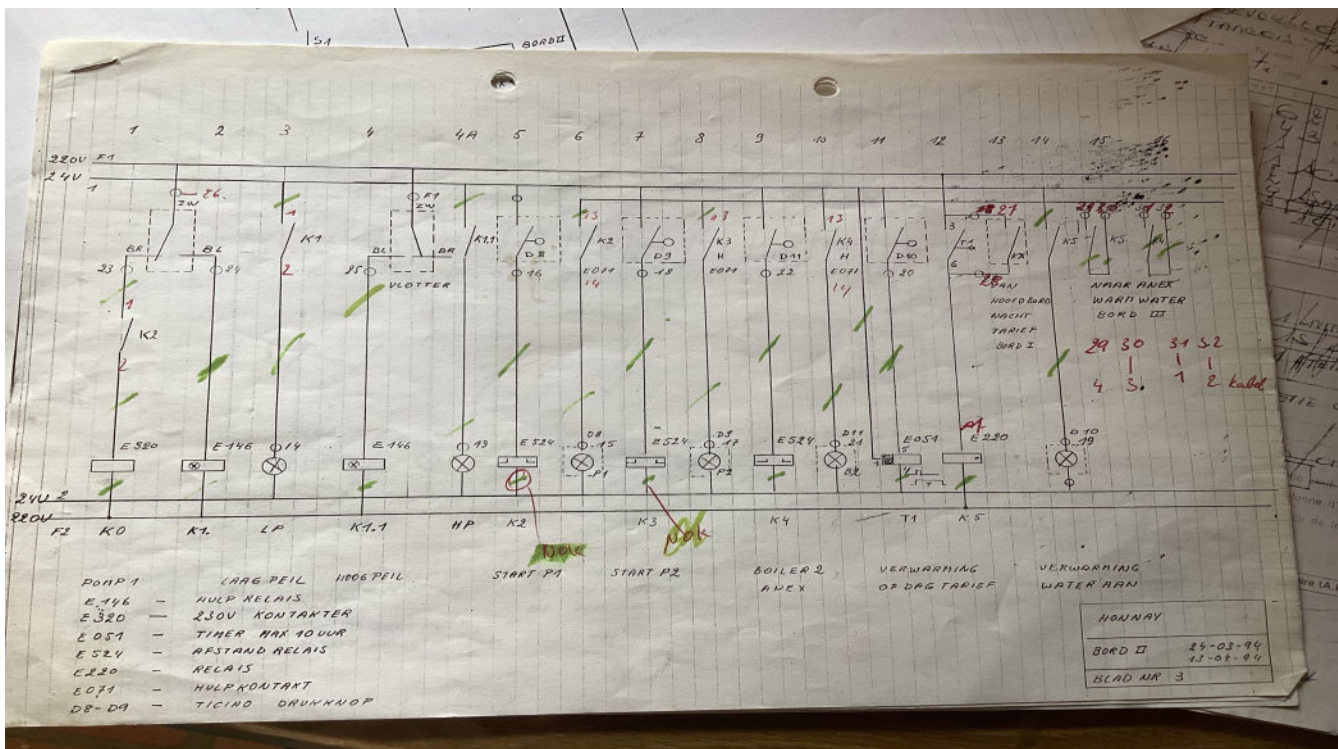 S1
BORD II
1 2 3 4 4A 5 6 7 8 9 10 11 12 13 14 15 16
220V F1
24V
1
26
ZW
BR
BL
23
24
1
K2
2
1
K1
2
F1
ZW
BL
BR
25
VLOTTER
K1.1
D8
16
13
K2
E071
14
D9
18
13
K3
H
E071
D11
22
13
K4
H
E071
14
D10
20
3
T1
6
27
28
VAN
HOOFDBORD
NACHT
TARIEF
BORD I
K5
K5
NAAR ANEX
WARM WATER
BORD III
29 30 31 32
4 3. 1 2 kabel
E320
E146
14
E146
13
E524
D8
15
P1
E524
D9
17
P2
E524
D11
21
B2
E051
A1
E220
D10
19
24V 2
220V
F2 K0 K1. LP K1.1 HP K2 K3 K4 T1 K5
NOK
NOK
POMP 1 LAAG PEIL HOOG PEIL START P1 START P2 BOILER 2 VERWARMING VERWARMING
ANEX OP DAG TARIEF WATER AAN
E146 — HULP RELAIS
E320 — 230V KONTAKTER
E051 — TIMER MAX 10 UUR
E524 — AFSTAND RELAIS
E220 — RELAIS
E071 — HULPKONTAKT
D8-D9 — TICINO DRUKKNOP
HONNAY
BORD II 24-03-94
13-04-94
BLAD NR 3